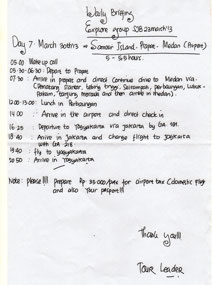 Daily Briefing
Explore group SJB 22march'13
Day 7. March 30th'13 → Samosir Island. Prapat. Medan (Airport)
5 - 5.5 hours.
05.00 Wake up call
05.30-06.30 : Depart to Prapat
Arrive in prapat and direct continue drive to Medan via
Siantar, tebing tinggi, perbaungan, Lubuk-
and then arrive in medan).
12.00-13.00 : Lunch in Perbaungan
14.00 : Arrive in the airport and direct check in
16.25 : Departure to Yogyakarta via Jakarta by GA
18.40 : Arrive in Jakarta and change flight to Jogyakarta
with GA 218
19.40 : fly to Yogyakarta
20.50 : Arrive in Yogyakarta
Note : please !!! Prepare Rp 35.000/pax for airport tax (domestic flight)
and also your passport!!!
Thank you!!!
Tour Leader